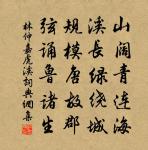 山阔青连海
溪长绿绕城
规模唐故郡
弦诵鲁诸生
林仲嘉虎溪 词典网集